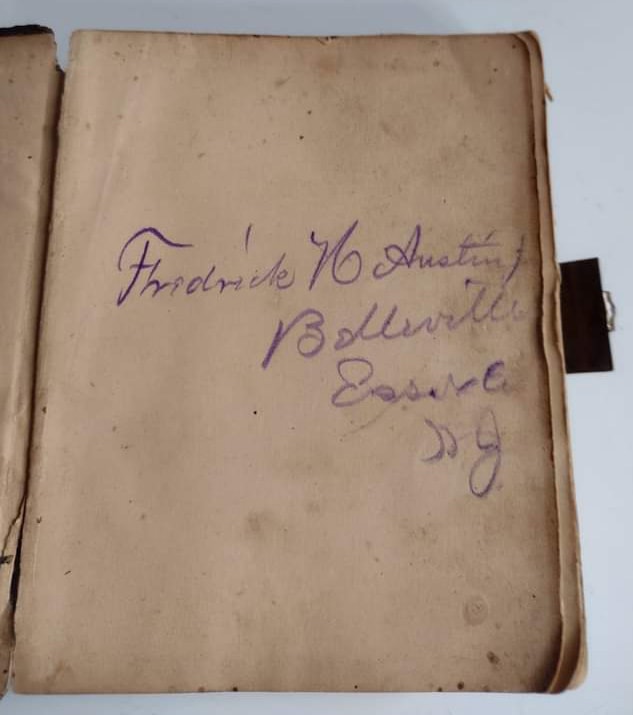 Fredrick H Austin
Belleville
Essex Co
N J